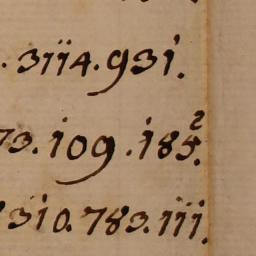 . 3114.931.
73.109.185.²
310.783.111.